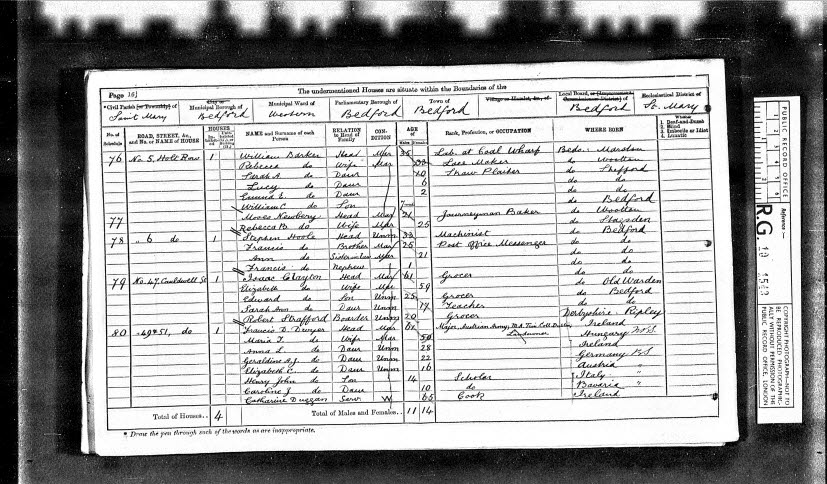 Page 16]
The undermentioned Houses are situate within the Boundaries of the
Civil Parish [or Township] of
City or
Municipal Borough of
Municipal Ward of
Parliamentary Borough of
Town of
Village or Hamlet, &c., of
Local Board, or [Improvement Commissioners District] of
Ecclesiastical District of
Saint Mary Bedford Western Bedford Bedford Bedford St. Mary
No. of Schedule
ROAD, STREET, &c., and No. or NAME of HOUSE
HOUSES
NAME and Surname of each Person
RELATION to Head of Family
CONDITION
AGE of
Males Females
Rank, Profession, or OCCUPATION
WHERE BORN
Whether
1. Deaf-and-Dumb
2. Blind
3. Imbecile or Idiot
4. Lunatic
76 No. 5, Holt Row 1 William Darker Head Mar 35 Lab. at Coal Wharf Beds. Marston
Rebecca do Wife Mar Lace Maker do Wootton
Sarah A. do Daur 10 Straw Plaiter do Shefford
Lucy do Daur 6 do do
Daur 2 do do
William C. do Son do Bedford
77 Moses Newbery Head Mar 21 Journeyman Baker do Wootton
Rebecca B. do Wife Mar 25 do Stagsden
78 " 6 do 1 Stephen Hoole Head Unm 33 Machinist do Bedford
Francis do Brother Mar 25 Post Office Messenger do do
Ann do Mar 21 do do
Francis do Nephew 1 do do
79 No. 47, Cauldwell St 1 Isaac Clayton Head Mar 61 Grocer do Old Warden
Elizabeth do Wife Mar 59 do Bedford
Edward do Son Unm 25 Grocer do do
Sarah Ann do Daur Unm 17 Teacher
Robert Strafford Boarder Unm 20 Grocer Derbyshire Ripley
80 " 49 & 51, do 1 Francis D. Dwyer Head Mar Major, Austrian Army, Ireland
Maria T. do Wife Mar 50 Landowner Hungary
Anna L. do Daur Unm 28 Ireland
Geraldine do Daur Unm 22 Germany
Elizabeth C. do Daur Unm 16 Austria "
Henry John do Son 14 Scholar Italy "
Caroline J. do Daur 10 do Bavaria "
Catharine Duggan Serv W 65 Cook Ireland
Total of Houses.. 4 Total of Males and Females.. 11 14
* Draw the pen through such of the words as are inappropriate.
PUBLIC RECORD OFFICE
Reference:-
R.G. 10
COPYRIGHT PHOTOGRAPH—NOT TO BE REPRODUCED PHOTOGRAPHICALLY WITHOUT PERMISSION OF THE PUBLIC RECORD OFFICE, LONDON